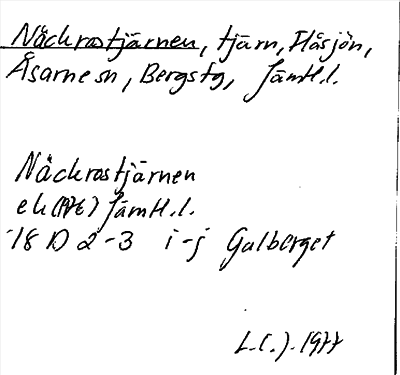 Näckrostjärnen, tjärn, Håsjön,
Åsarne sn, Bergs tg, Jämtl. l.
Näckrostjärnen
ek (1976) Jämtl. l.
18 D 2-3 i-j Galberget
L. L. ). 1977